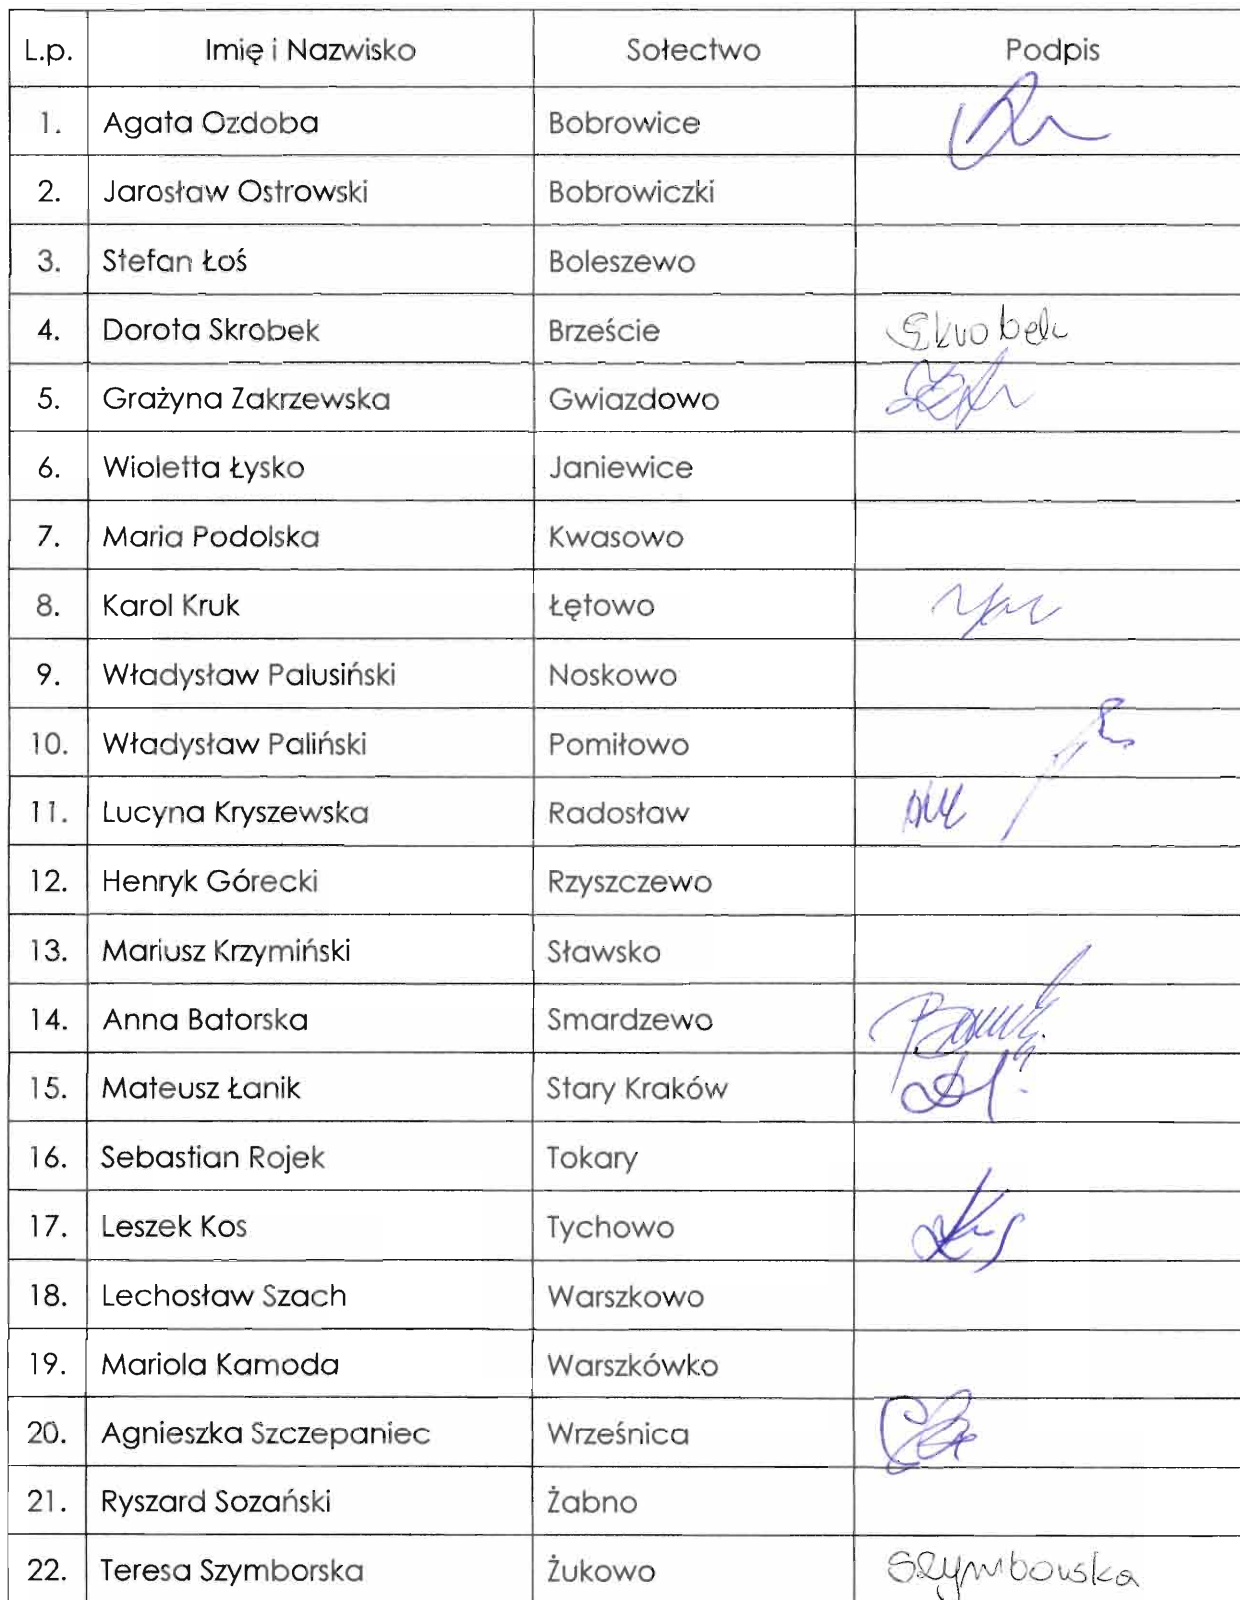 L.p. Imię i Nazwisko Sołectwo Podpis
1. Agata Ozdoba Bobrowice
2. Jarosław Ostrowski Bobrowiczki
3. Stefan Łoś Boleszewo
4. Dorota Skrobek Brzeście Skrobek
5. Grażyna Zakrzewska Gwiazdowo
6. Wioletta Łysko Janiewice
7. Maria Podolska Kwasowo
8. Karol Kruk Łętowo
9. Władysław Palusiński Noskowo
10. Władysław Paliński Pomiłowo
11. Lucyna Kryszewska Radosław
12. Henryk Górecki Rzyszczewo
13. Mariusz Krzymiński Sławsko
14. Anna Batorska Smardzewo
15. Mateusz Łanik Stary Kraków
16. Sebastian Rojek Tokary
17. Leszek Kos Tychowo
18. Lechosław Szach Warszkowo
19. Mariola Kamoda Warszkówko
20. Agnieszka Szczepaniec Wrześnica
21. Ryszard Sozański Żabno
22. Teresa Szymborska Żukowo Szymborska